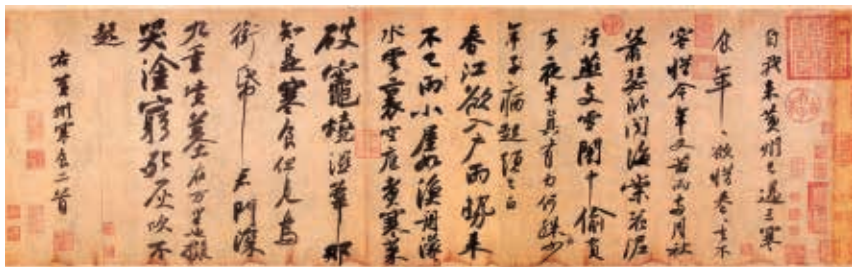 自我來黃州已過三寒
食年〻欲惜春〻去不
容惜今年又苦雨兩月秋
蕭瑟臥聞海棠花泥
汙燕支雪闇中偷負
去夜半真有力何殊少
年子病起須已白
春江欲入戶雨勢來
不已雨小屋如漁舟濛〻
水雲裏空庖煮寒菜
破竈燒濕葦那
知是寒食但見烏
銜帋君門深
九重墳墓在万里也擬
哭塗窮死灰吹不
起
右黃州寒食二首